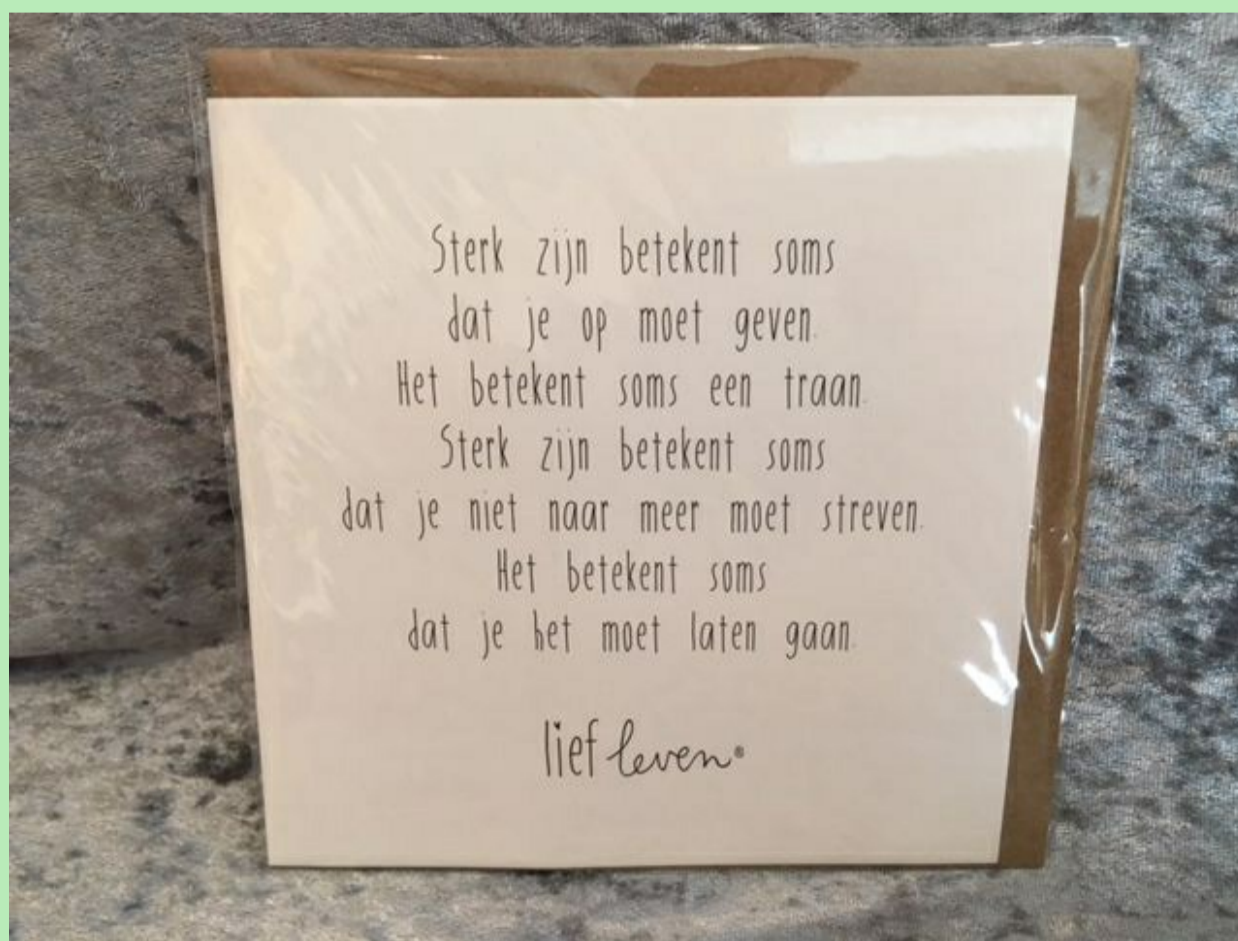 Sterk zijn betekent soms
dat je op moet geven.
Het betekent soms een traan.
Sterk zijn betekent soms
dat je niet naar meer moet streven.
Het betekent soms
dat je het moet laten gaan.
lief leven®